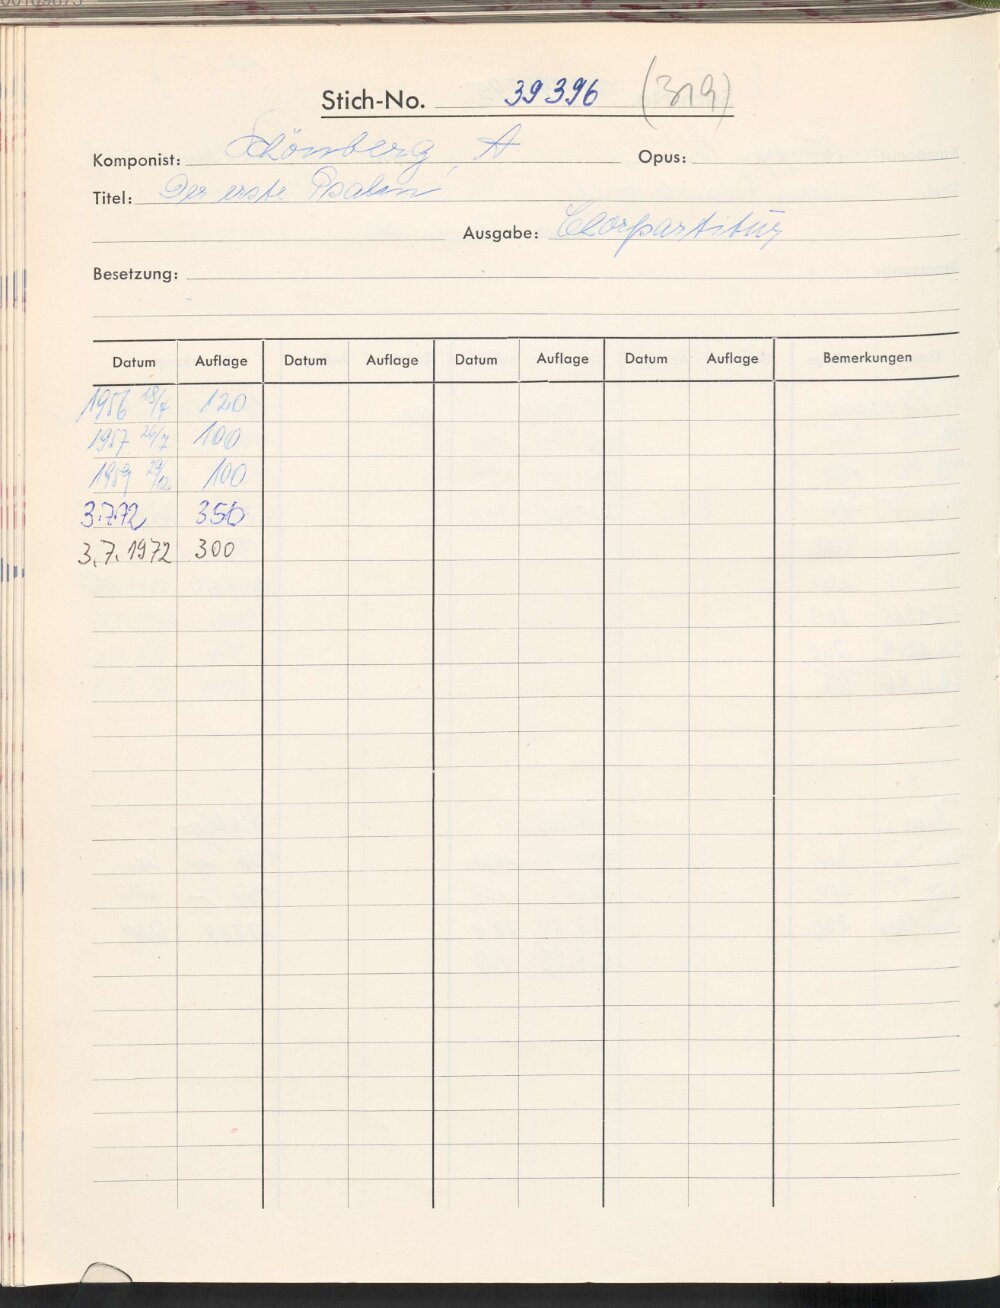 Stich-No. 39396 (319)
Komponist: Schönberg, A Opus:
Titel: Der erste Psalm
Ausgabe: Chorpartitur
Besetzung:
Datum Auflage Datum Auflage Datum Auflage Datum Auflage Bemerkungen
1956 18/4 120
1957 26/7 100
1959 29/12 100
3.7.72 350
3.7.1972 300